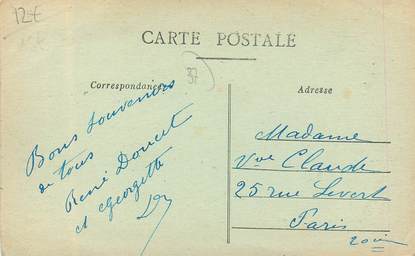 12€
CARTE POSTALE
37
Correspondance
Adresse
Bons souvenirs
de tous
René Doucet
et Georgette
Madame
Vve Claude
25 rue Levert
Paris
20è